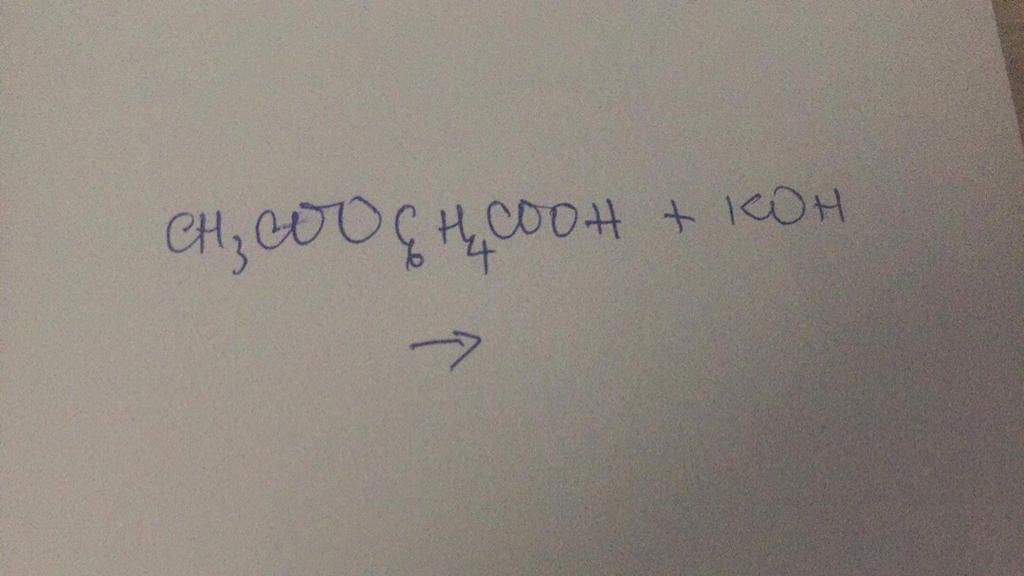 CH₃COOC₆H₄COOH + KOH
→